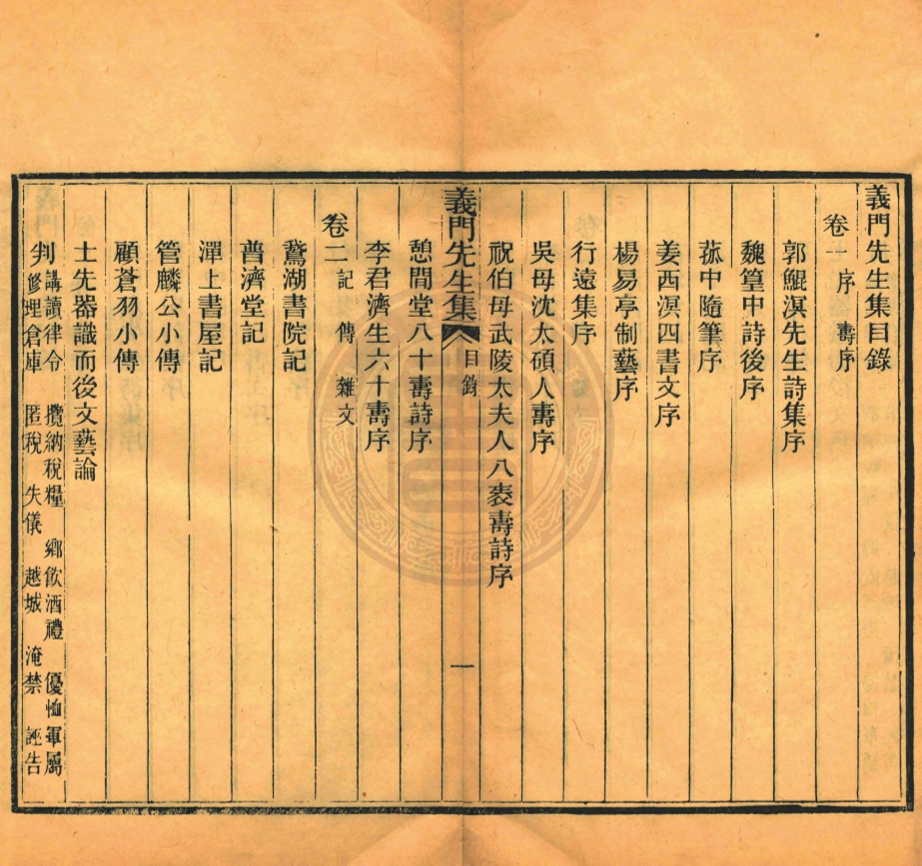 義門先生集目錄
卷一 序 壽序
郭鯤溟先生詩集序
魏篁中詩後序
菰中隨筆序
姜西溟四書文序
楊易亭制藝序
行遠集序
吳母沈太碩人壽序
祝伯母武陵太夫人八袠壽詩序
義門先生集 目錄 一
憩閒堂八十壽詩序
李君濟生六十壽序
卷二 記 傳 雜文
鵞湖書院記
普濟堂記
潬上書屋記
管麟公小傳
顧蒼羽小傳
士先器識而後文藝論
判 講讀律令 攬納稅糧 鄉飲酒禮 優恤軍屬
修理倉庫 匿稅 失儀 越城 淹禁 誣告